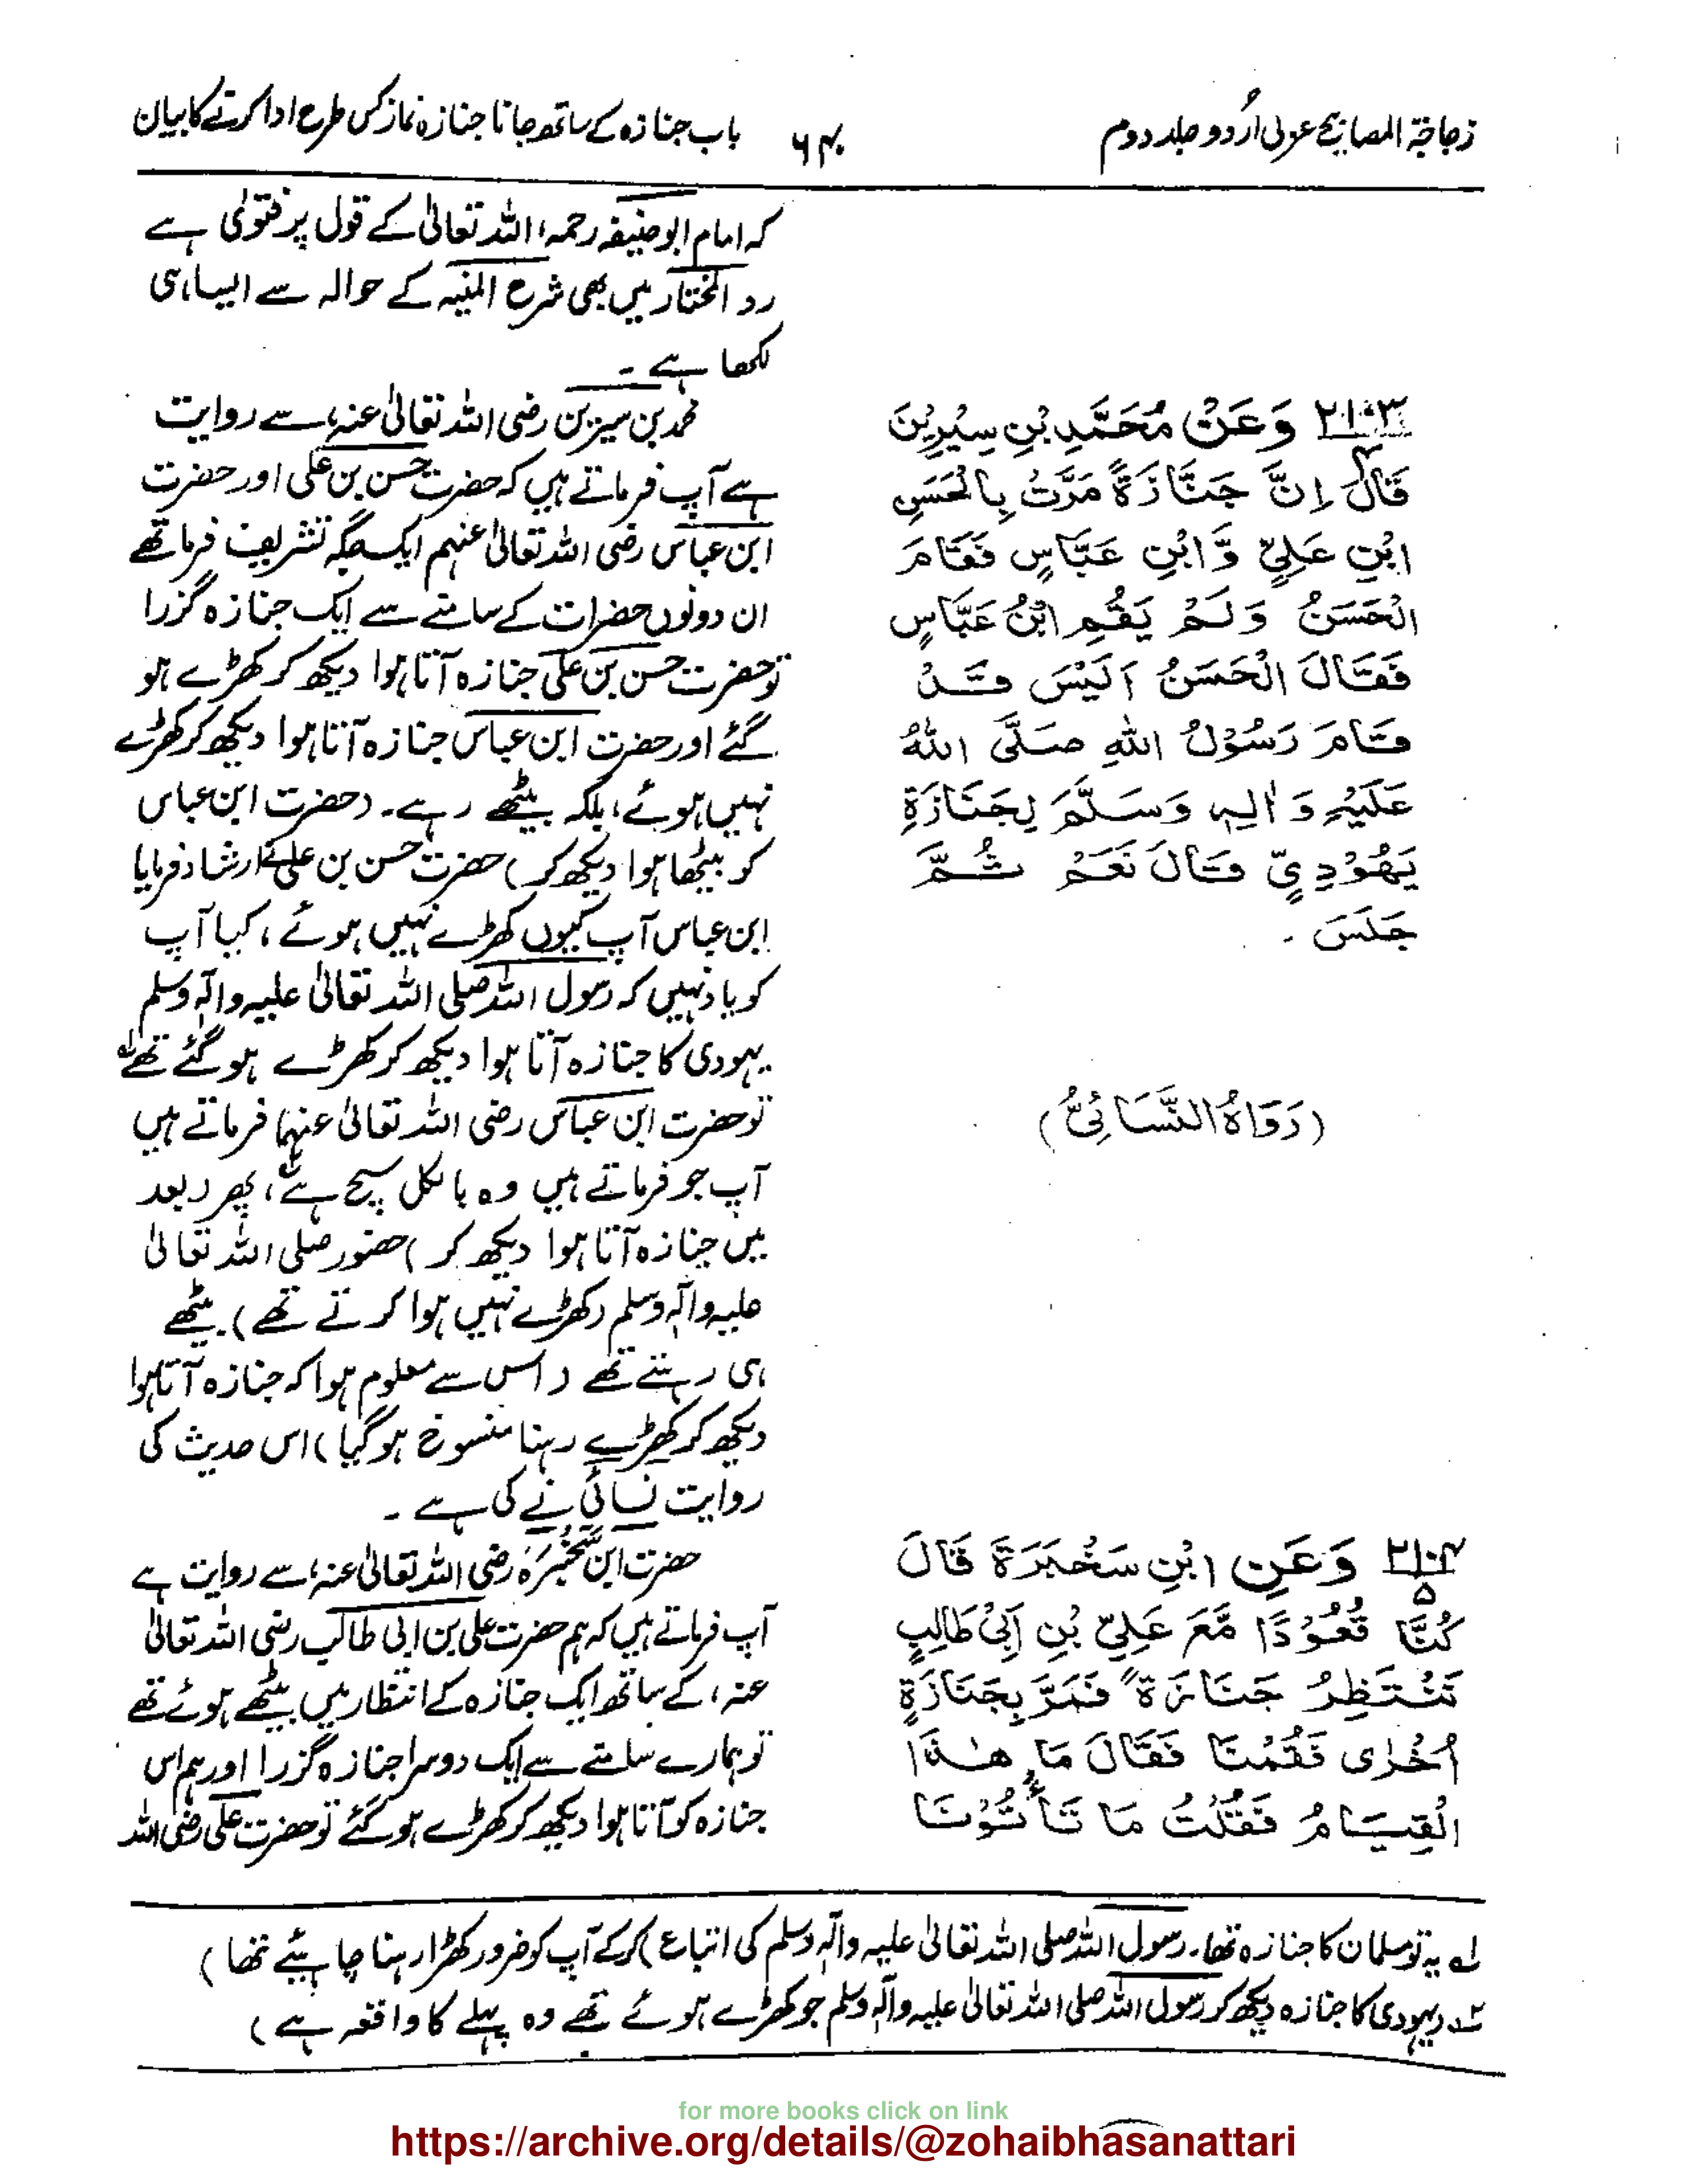 زجاجۃ المصابیح عربی اُردو جلد دوم
۶۴۰
باب جنازہ کے ساتھ جانا جنازہ نماز کس طرح ادا کرنے کا بیان
کہ امام ابو حنیفہ رحمہ اللہ تعالیٰ کے قول پر فتویٰ ہے
رد المختار میں بھی شرح المنیہ کے حوالہ سے ایسا ہی
لکھا ہے ۔
۲۱۰۳ وَعَنْ مُحَمَّدِ بْنِ سِيْرِيْنَ
۴
قَالَ اِنَّ جَنَازَةً مَرَّتْ بِالْحَسَنِ
ابْنِ عَلِيٍّ وَّابْنِ عَبَّاسٍ فَقَامَ
الْحَسَنُ وَلَمْ يَقُمِ ابْنُ عَبَّاسٍ
فَقَالَ الْحَسَنُ اَلَيْسَ قَدْ
قَامَ رَسُوْلُ اللهِ صَلَّى اللهُ
عَلَيْهِ وَاٰلِهٖ وَسَلَّمَ لِجَنَازَةِ
يَهُوْدِيٍّ قَالَ نَعَمْ ثُمَّ
جَلَسَ ۔
(رَوَاهُ النَّسَائِيُّ)
محمد بن سیرین رضی اللہ تعالیٰ عنہ، سے روایت
ہے آپ فرماتے ہیں کہ حضرت حسن بن علی اور حضرت
ابن عباس رضی اللہ تعالیٰ عنہم ایک جگہ تشریف فرما تھے
ان دونوں حضرات کے سامنے سے ایک جنازہ گزرا
تو حضرت حسن بن علی جنازہ آتا ہوا دیکھ کر کھڑے ہو
گئے اور حضرت ابن عباس جنازہ آتا ہوا دیکھ کر کھڑے
نہیں ہوئے، بلکہ بیٹھے رہے۔ (حضرت ابن عباس
کو بیٹھا ہوا دیکھ کر) حضرت حسن بن علی نے ارشاد فرمایا
ابن عباس آپ کیوں کھڑے نہیں ہوئے، کیا آپ
کو یاد نہیں کہ رسول اللہ صلی اللہ تعالیٰ علیہ واٰلہٖ وسلم
یہودی کا جنازہ آتا ہوا دیکھ کر کھڑے ہو گئے تھے لہ
تو حضرت ابن عباس رضی اللہ تعالیٰ عنہما فرماتے ہیں
آپ جو فرماتے ہیں وہ بالکل صحیح ہے، پھر (بعد
میں جنازہ آتا ہوا دیکھ کر) حضور صلی اللہ تعالیٰ
علیہ واٰلہٖ وسلم (کھڑے نہیں ہوا کرتے تھے) بیٹھے
ہی رہتے تھے (اس سے معلوم ہوا کہ جنازہ آتا ہوا
دیکھ کر کھڑے رہنا منسوخ ہو گیا) اس حدیث کی
روایت نسائی نے کی ہے ۔
۲۱۰۴ وَعَنِ ابْنِ سَخْبَرَةَ قَالَ
۵
كُنَّا قُعُوْدًا مَّعَ عَلِيِّ بْنِ اَبِيْ طَالِبٍ
نَنْتَظِرُ جَنَازَةً فَمَرَّ بِجَنَازَةٍ
اُخْرٰى فَقُمْنَا فَقَالَ مَا هٰذَا
الْقِيَامُ فَقُلْتُ مَا تَأْتُوْنَا
حضرت ابن سَخْبَرَہ رضی اللہ تعالیٰ عنہ، سے روایت ہے
آپ فرماتے ہیں کہ ہم حضرت علی بن ابی طالب رضی اللہ تعالیٰ
عنہ، کے ساتھ ایک جنازہ کے انتظار میں بیٹھے ہوئے تھے
تو ہمارے سامنے سے ایک دوسرا جنازہ گزرا اور ہم اس
جنازہ کو آتا ہوا دیکھ کر کھڑے ہو گئے تو حضرت علی رضی اللہ
لہ یہ تو مسلمان کا جنازہ تھا۔ رسول اللہ صلی اللہ تعالیٰ علیہ واٰلہٖ وسلم کی اتباع) کر کے آپ کو ضرور کھڑا رہنا چاہیئے تھا)
ٹہ (یہودی کا جنازہ دیکھ کر رسول اللہ صلی اللہ تعالیٰ علیہ واٰلہٖ وسلم جو کھڑے ہوئے تھے وہ پہلے کا واقعہ ہے)
for more books click on link
https://archive.org/details/@zohaibhasanattari